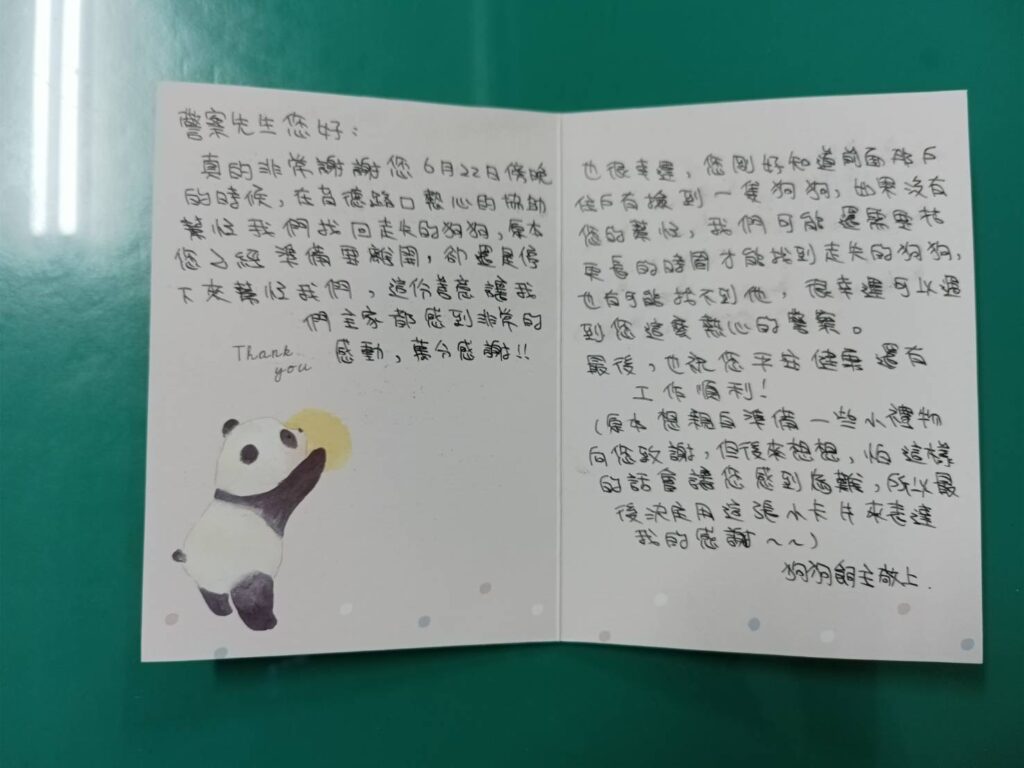 警察先生您好：
真的非常謝謝您6月22日傍晚
的時候，在育德路口熱心的協助
幫忙我們找回走失的狗狗，原本
您已經準備要離開，卻還是停
下來幫忙我們，這份善意讓我
們全家都感到非常的
感動，萬分感謝!!
Thank
you
也很幸運，您剛好知道前面
住戶有撿到一隻狗狗，如果沒有
您的幫忙，我們可能還需要花
更長的時間才能找到走失的狗狗，
也有可能找不到他，很幸運可以遇
到您這麼熱心的警察。
最後，也祝您平安健康還有
工作順利!
(原本想親自準備一些小禮物
向您致謝，但後來想想，怕這樣
的話會讓您感到為難，所以最
後決定用這張小卡片來表達
我的感謝~~)
狗狗飼主敬上.